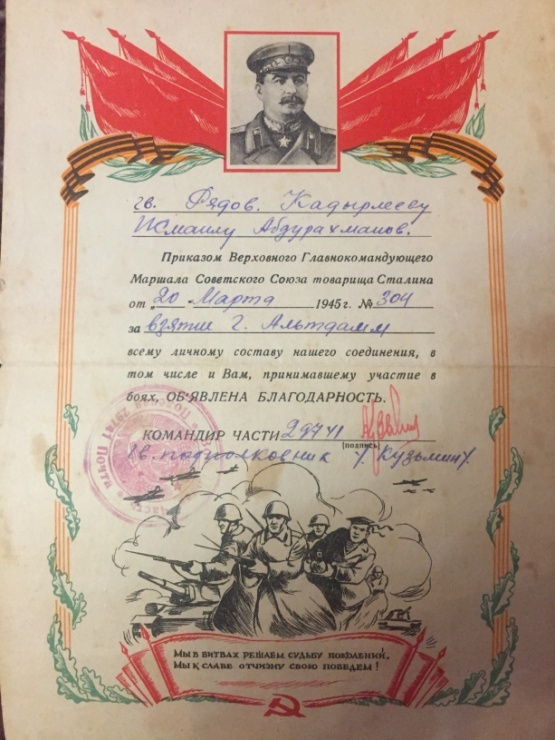 гв. Рядов. Кадырлееву
Исмаилу Абдурахманов.
Приказом Верховного Главнокомандующего
Маршала Советского Союза товарища Сталина
от „20“ Марта 1945 г. № 304
за взятие г. Альтдамм
всему личному составу нашего соединения, в
том числе и Вам, принимавшему участие в
боях, ОБ'ЯВЛЕНА БЛАГОДАРНОСТЬ.
КОМАНДИР ЧАСТИ 29741
(подпись)
Гв. подполковник /Кузьмин/.
Полевая Почта 29741
МЫ В БИТВАХ РЕШАЕМ СУДЬБУ ПОКОЛЕНИЙ,
МЫ К СЛАВЕ ОТЧИЗНУ СВОЮ ПОВЕДЕМ!